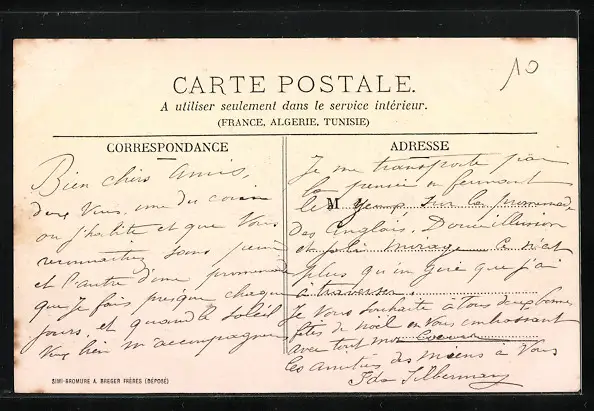 10
CARTE POSTALE.
A utiliser seulement dans le service intérieur.
(FRANCE, ALGERIE, TUNISIE)
CORRESPONDANCE
Bien chers Amis,
deux Vues, une du
où j'habite et que Vous
reconnaitrez sans peine
et l'autre d'une promenade
que Je fais presque chaque
jours, et quand le soleil
Veux bien m'accompagner
SIMI-BROMURE A. BREGER FRÈRES (DÉPOSÉ)
ADRESSE
Je me transporte par
la pensée en fermant
les M yeux, sur la promenade
des Anglais. Douce illusion
et joli mirage
plus qu'un que j'ai
à traverser.
Je Vous souhaite à Tous deux bonnes
fêtes de Noël en Vous embrassant
avec tout mon Coeur
les amitiés des miens à Vous
Ida Silbermany